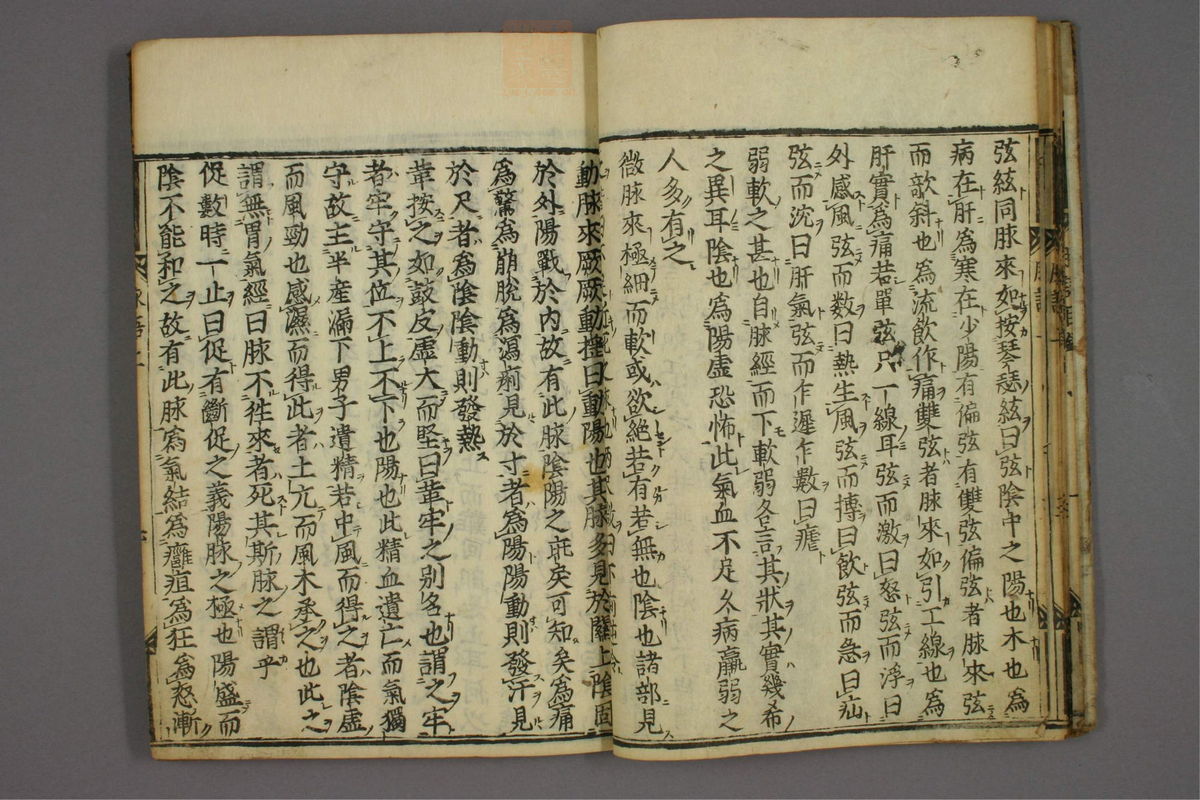 弦絃同脉來如按琴瑟絃曰弦陰中之陽也木也為
病在肝為寒在少陽有偏弦有雙弦偏弦者脉來弦
而欹斜也為流飲作痛雙弦者脉來如引二線也為
肝實為痛若單弦只一線耳弦而激曰怒弦而浮曰
外感風弦而数曰熱生風弦而搏曰飲弦而急曰疝
弦而沈曰肝氣弦而乍遲乍數曰瘧
弱軟之甚也自脉經而下軟弱各言其狀其實幾希
之異耳陰也為陽虚恐怖此氣血不足久病羸弱之
人多有之
微脉來極細而軟或欲絕若有若無也陰也諸部見
動脉來厥厥動揺曰動陽也其脉多見於關上陰固
於外陽戰於内故有此脉陰陽之疵矣可知矣為痛
為驚為崩脫為瀉痢見於寸者為陽陽動則發汗見
於尺者為陰陰動則發熱
革按之如鼓皮虚大而堅曰革牢之别名也謂之牢
者牢守其位不上不下也陽也此精血遺亡而氣獨
守故主半産漏下男子遺精若中風而得之者陰虚
而風勁也感濕而得此者土亢而風木承之也此之
謂無胃氣經曰脉不徃來者死其斯脉之謂乎
促數時一止曰促有斷促之義陽脉之極也陽盛而
陰不能和之故有此脉為氣結為癰疽為狂為怒漸